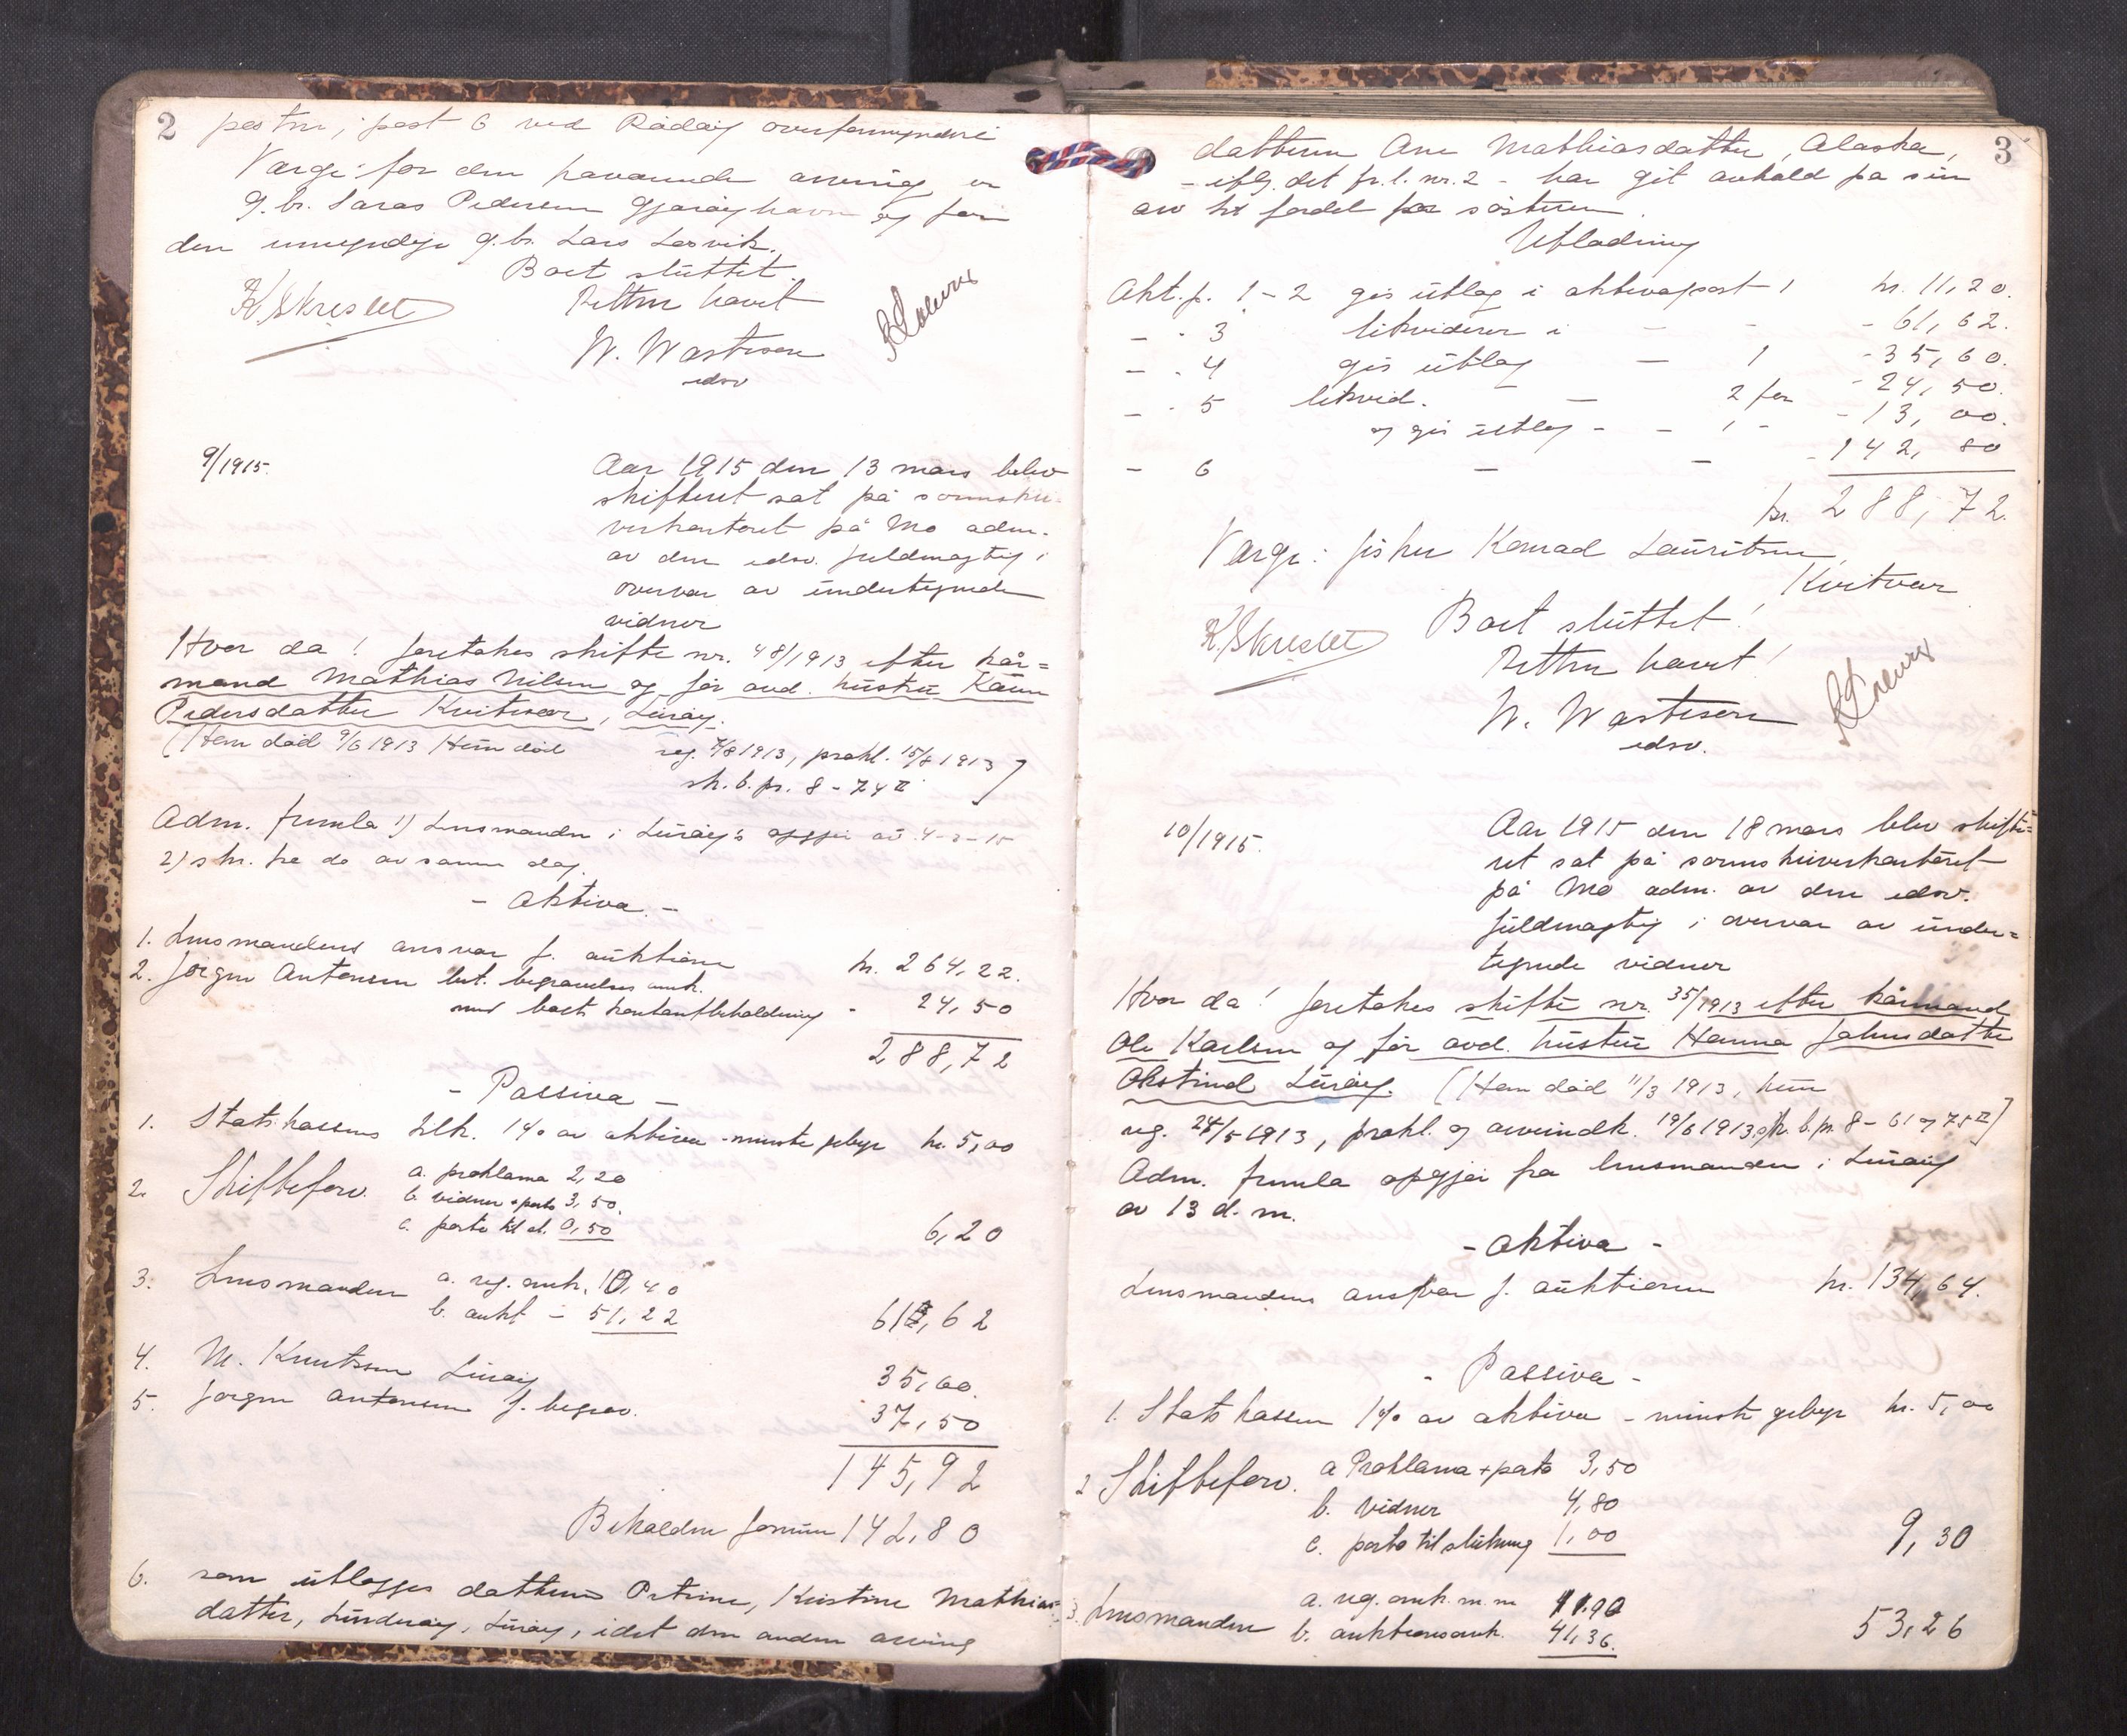 2 post nr, post 6 ved Rødøy overformynderi
Verge: for den fraværende arving er
g.br. Laras Pedersen Gjærøyhavn og for
den umyndige g.br. Lars Lasvik.
Boet sluttet.
Retten hævet
K Skreslet
W. Wastesen
edsv
9/1915.
Aar 1915 den 13 mars blev
skifteret sat på sorenskri-
verkontoret på Mo adm.
av den edsv. fuldmægtig i
overvær av undertegnede
vidner
Hvor da! foretokes skifte nr. 48/1913 efter kår=
mand Mathias Nilsen og før avd. hustru Karen
Pedersdatter Kvitvær, Lurøy.
(Han død 9/6 1913 Hun død
reg. 7/8 1913, prokl. 15/8 1913
sk.b.pr. 8 - 74 II)
Adm. fremla 1) Lensmanden i Lurøy's opgjør av 4-3-15
2) skr. fra do av samme dag.
- Aktiva. -
1. Lensmandens ansvar f. auktionen kr. 264,22.
2. Jørgen Antonsen bet. begravelses omk.
med boets kontantbeholdning - 24,50
288,72
- Passiva -
1. Statskassens tilk. 1% av aktiva - minste gebyr kr. 5,00
2. Skifteforv. a. proklama 2,20
b. vidner + porto 3,50.
c. porto til sl. 0,50
6,20
3. Lensmanden a. reg. omk. 10,40
b. aukt - 51,22
61,62
4. M. Knutsen Lurøy 35,60.
5. Jørgen Antonsen f. begrav. 37,50
145,92
Beholden formue 142,80
6. som utlægges datteren Petrine, Kristine Mathias-
datter, Sunderøy, Lurøy, idet den anden arving
3
datteren Ane Mathiasdatter, Alaska,
- iflg. det fr.l. nr. 2 - har git avkald på sin
arv til fordel for søsteren.
Utlodning
Akt. p. 1-2 gis utlæg i aktivapost 1 kr. 11,20.
- - 3 likviderer i - - - 61,62.
- - 4 gis utlæg - 1 - 35,60.
- - 5 likvid. - 2 for - 24,50.
og gis utlæg - - 1 - - 13,00.
- 6 - - - 142,80
kr. 288,72.
Verge: fisker Konrad Lauritsen,
Kvitvær
Boet sluttet!
K. Skreslet
Retten hævet!
W. Wastesen
edsv.
10/1915.
Aar 1915 den 18 mars blev skifte=
ret sat på sorenskriverkontoret
på Mo adm. av den edsv.
fuldmægtig i overvær av under=
tegnede vidner
Hvor da! foretokes skifte nr. 35/1913 efter kårmand
Ole Karlsen og før avd. hustru Hanna Johnsdatter
Okstind Lurøy. (Han død 11/3 1913, hun
reg. 24/5 1913, prokl. og arveindk. 19/6 1913, sk.b.pr. 8 - 61 og 75 II)
Adm. fremla opgjør fra lensmanden i Lurøy
av 13 d. m.
- Aktiva -
Lensmandens ansvar f. auktionen kr. 134,64.
- Passiva -
1. Statskassen 1% av aktiva - minste gebyr kr. 5,00
2 Skifteforv. a Proklama + porto 3,50
b. vidner 4,80
c. porto til slutning 1,00
9,30
3. Lensmanden a. reg. omk. m.m 11.90
b. auktionsomk. 41,36.
53,26